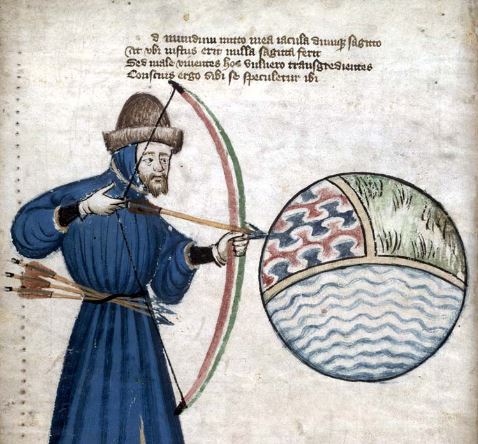 d mundum mitto mea iacula dumqꝫ sagitto
At vbi iustus erit nulla sagitta ferit
Sed male viuentes hos vulnero transgredientes
Conscius ergo sibi se speculetur ibi